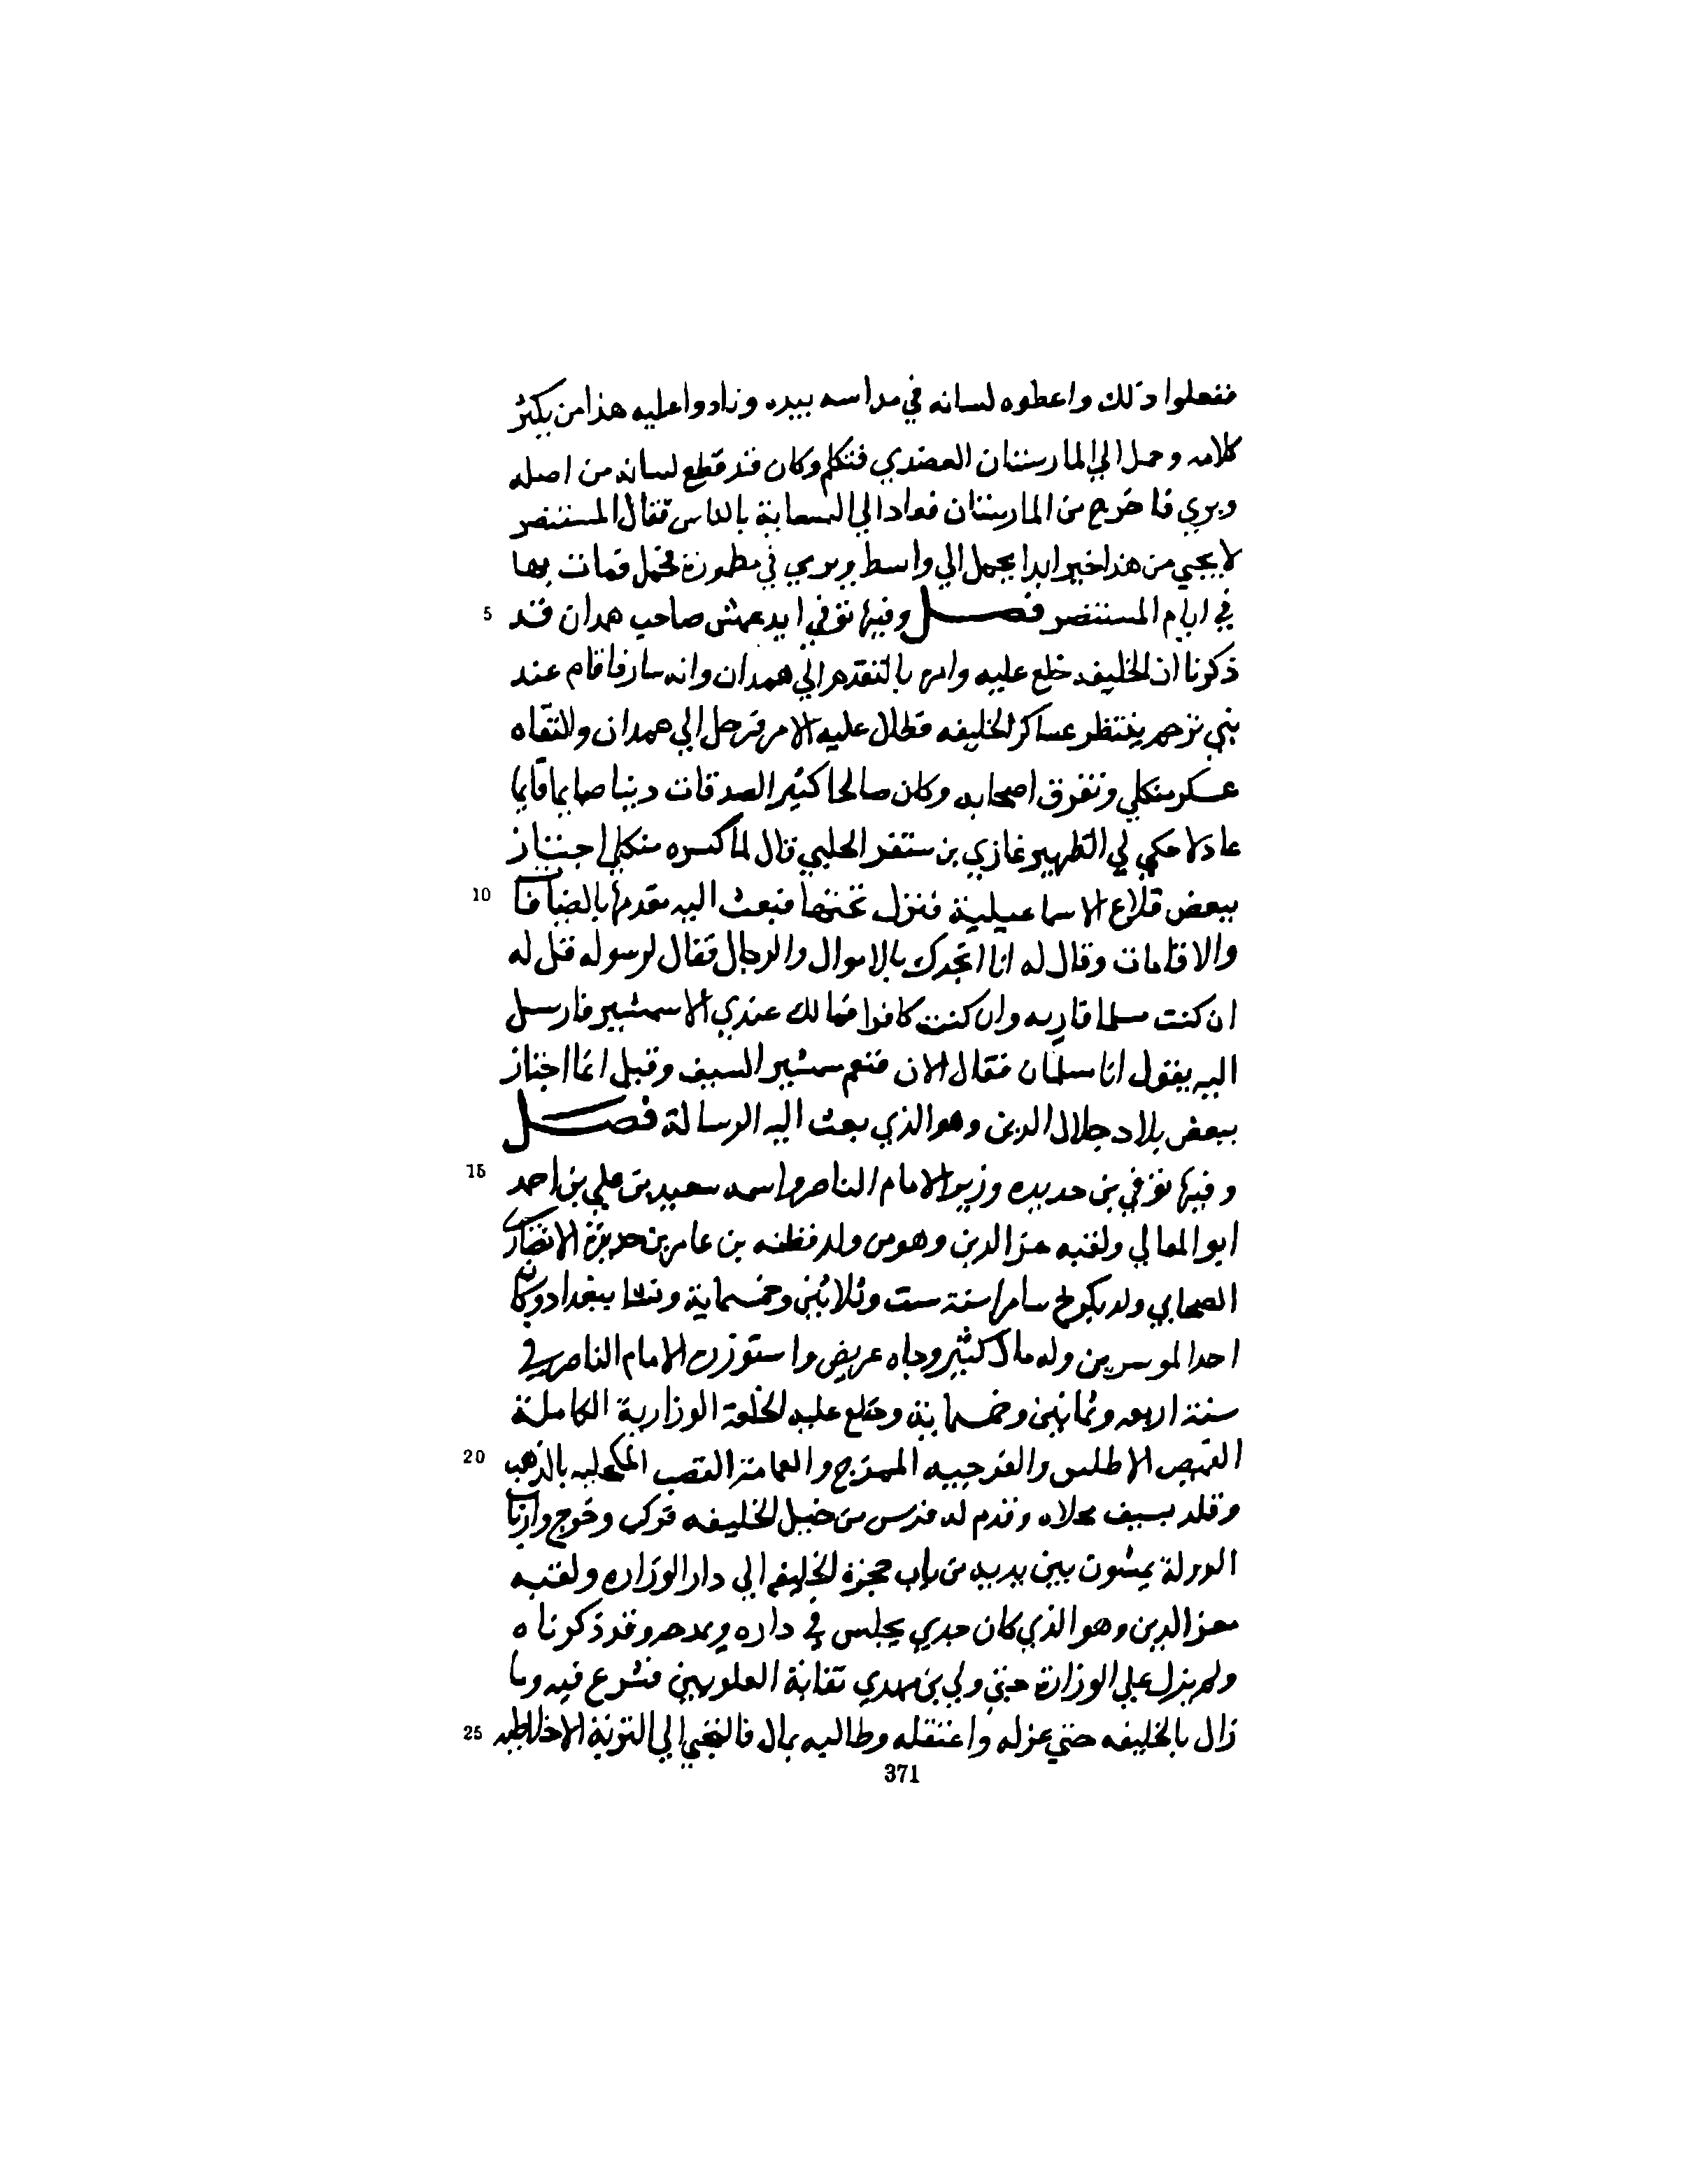 ففعلوا ذلك واعطوه لسانه في مداسه بيده ونادوا عليه هذا من يكثر
كلامه وحمل الي المارستان العضدي فتكلم وكان قد قطع لسانه من اصله
وبري فا خرج من المارستان فعاد الي السعاية بالناس فقال المستنصر
لا يجي من هذا خير ابدا يحمل الي واسط ويرمي في مطمورة فحمل فمات بها
5 في ايام المستنصر فصل وفيها توفي ايدغمش صاحب همدان قد
ذكرنا ان الخليفه خلع عليه وامره بالتقدم الي همدان وانه سار فاقام عند
بني ترجم ينتظر عساكر الخليفه فطال عليه الامر فرحل الي همدان والتقاه
عسكر منكلي وتفرق اصحابه وكان صالحا كثير الصدقات دينا صايما قايما
عادلا حكي لي الظهير غازي بن سنقر الحلبي قال لما كسره منكلي اجتاز
10 ببعض قلاع الاسماعيلية فنزل تحتها فبعث اليه مقدمها بالضيافا
والاقامات وقال له انا انجدك بالاموال والرجال فقال لرسوله قل له
ان كنت مسلما فاريه وان كنت كافرا فما لك عندي الا سمشير فارسل
اليه يقول انا مسلمان فقال الان فنعم سمشير السيف وقيل انما اجتاز
ببعض بلاد جلال الدين وهو الذي بعث اليه الرسالة فصل
15 وفيها توفي بن حديده وزير الامام الناصر واسمه سعيد بن علي بن احمد
ابو المعالي ولقبه معز الدين وهو من ولد قطبه بن عامر بن حديدة الانصاري
الصحابي ولد بكرخ سامرا سنة ست وثلاثين وخمسماية ونشا ببغداد وكان
احد الموسرين وله مال كثير وجاه عريض واستوزره الامام الناصر في
سنة اربعه وثمانين وخمسماية وخلع عليه الخلعة الوزارية الكاملة
20 القميص الاطلس والفرجيه الممزج والعمامة القصب المكحليه بالذهب
وقلد بسيف محلاه وقدم له فرس من خيل الخليفه فركب وخرج وارباب
الدولة يمشون بين يديه من باب حجرة الخليفه الي دار الوزاره ولقبه
معز الدين وهو الذي كان جدي يجلس في داره ويمدحه وقد ذكرناه
ولم يزل علي الوزارة حتي ولي بن مهدي نقابة العلويين فشرع فيه وما
25 زال بالخليفه حتي عزله واعتقله وطالبه بمال فالتجي الي التربة الاخلاطيه
371